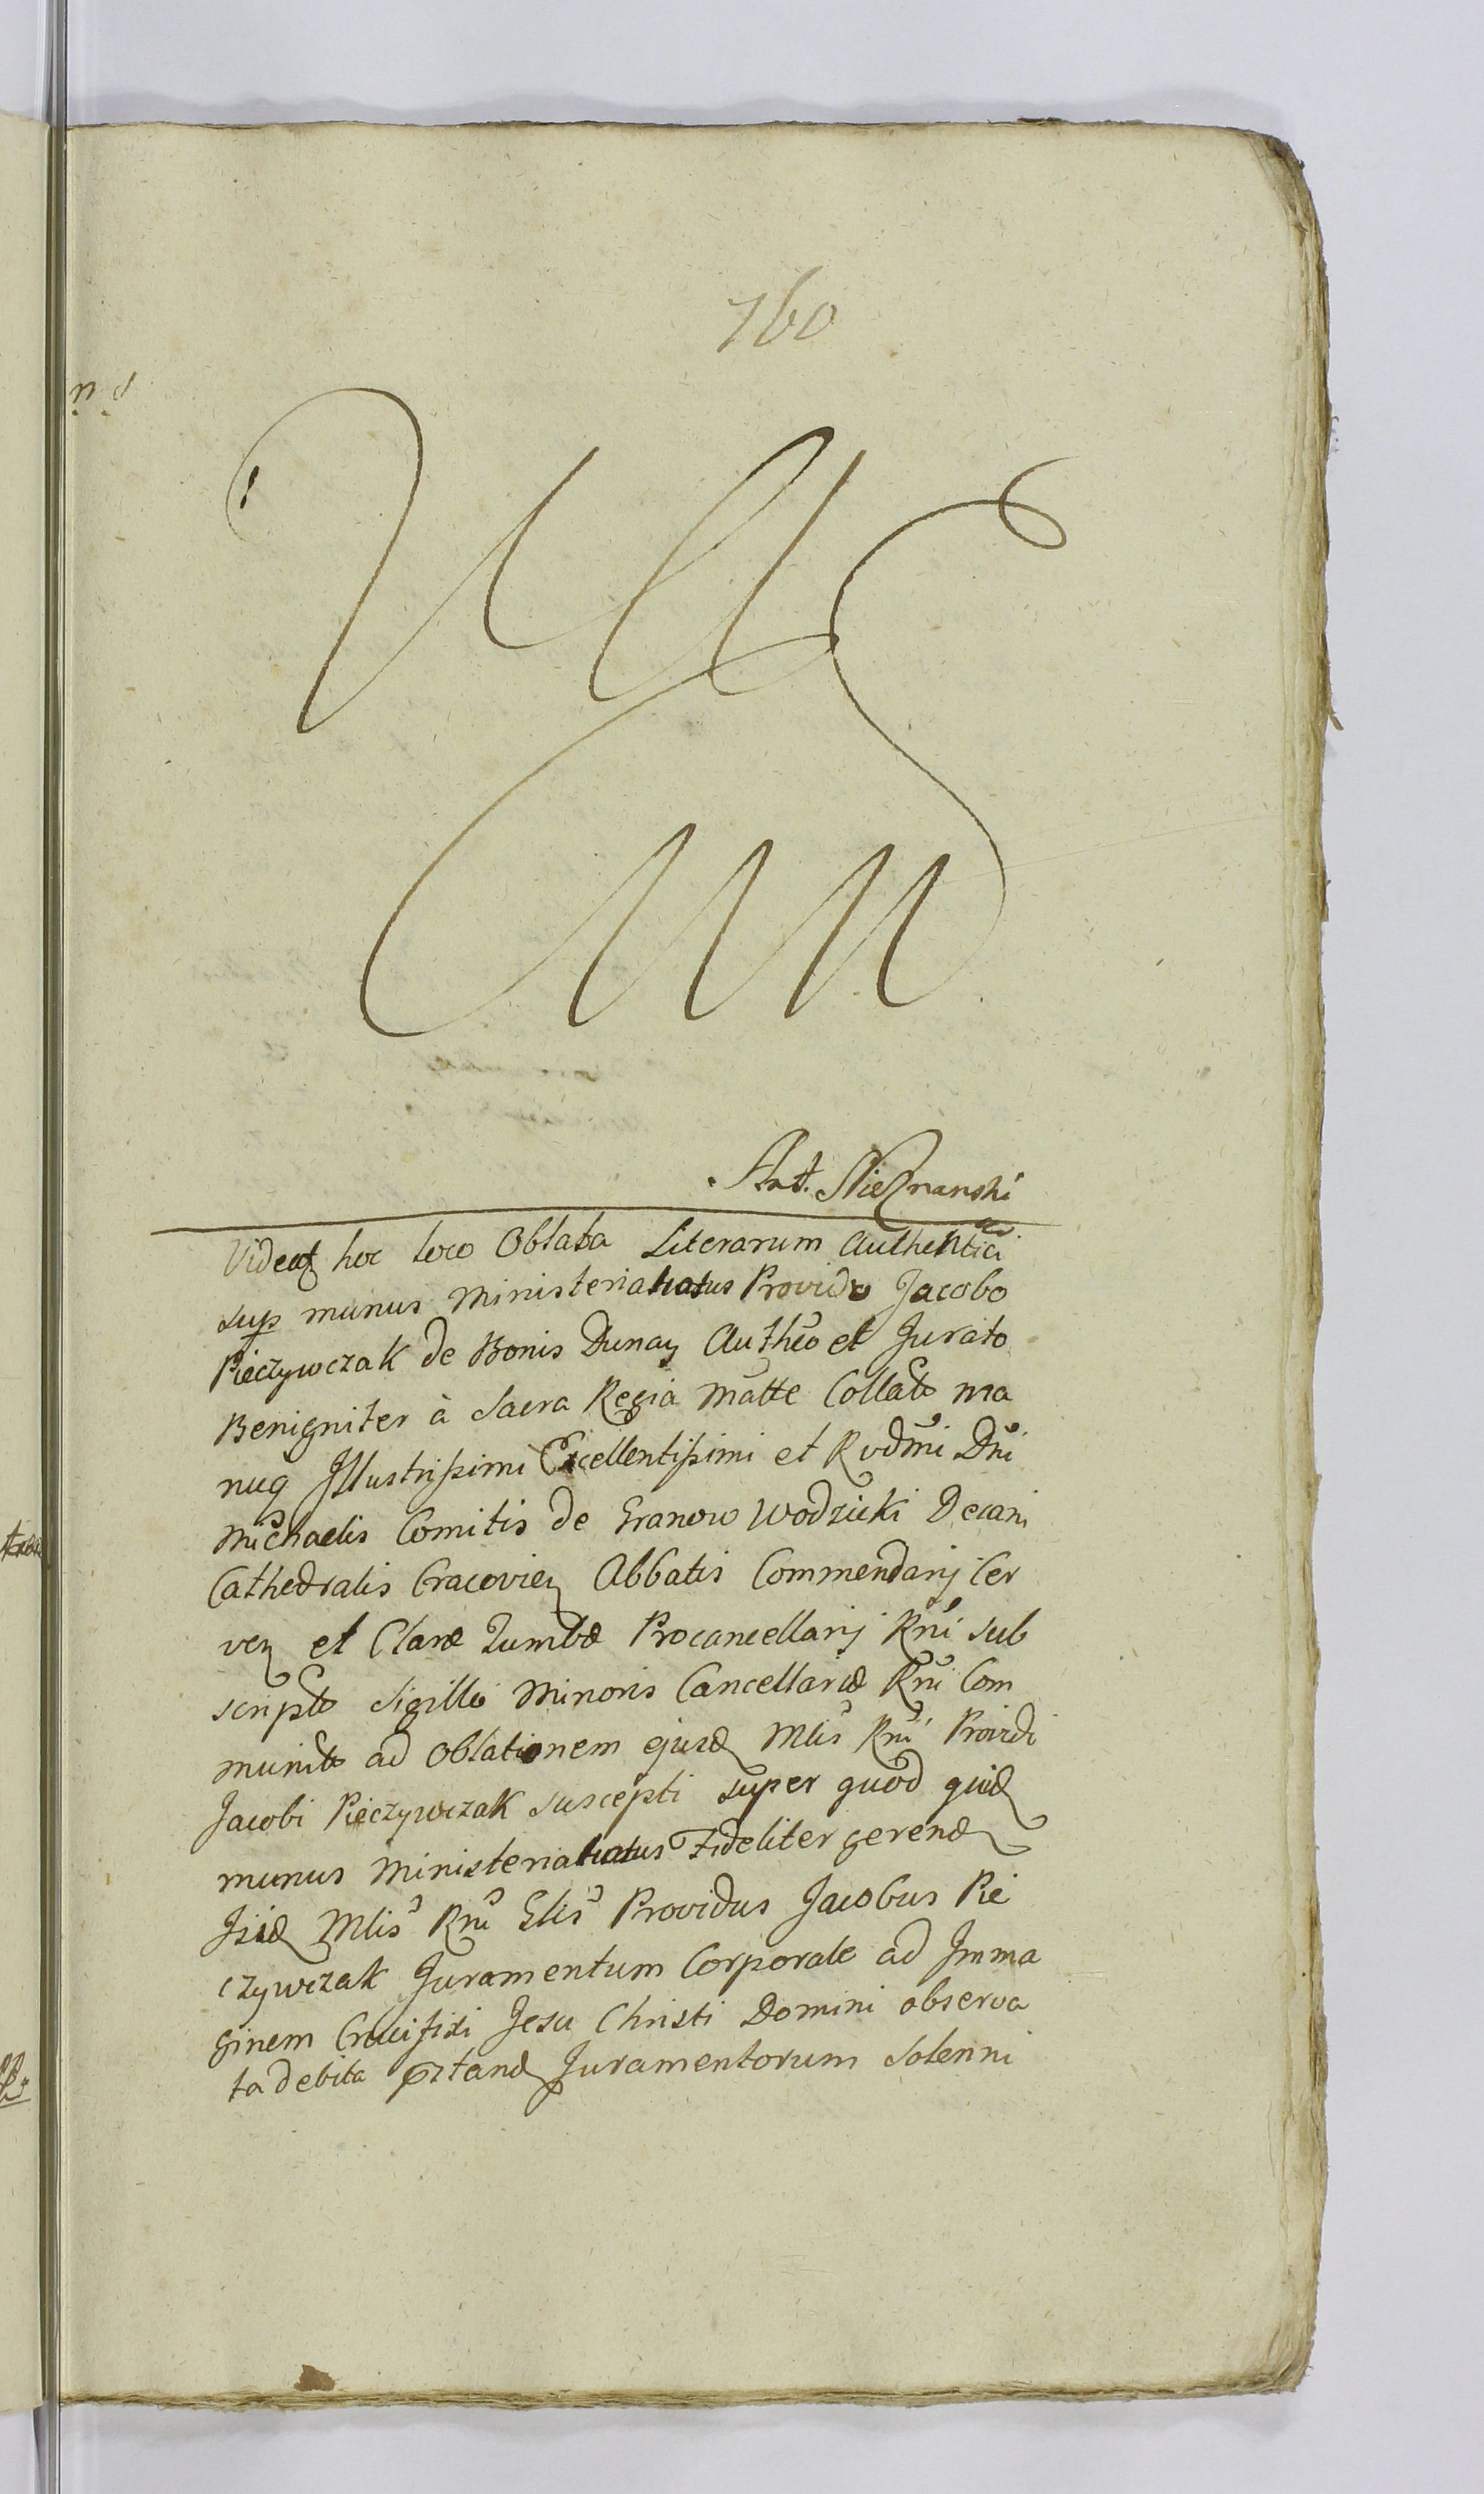 760
Ant. Nieznanski
Videat hoc loco Oblata Literarum Authentica
sup munus Ministerialiatus Provido Jacobo
Pieczywczak de Bonis Dunay Authēo et Jurato
Benigniter à Sacra Regia Matte Collato ma
nuq Illustrissimi Excellentissimi et Rvdmi Dni
Michaelis Comitis de Granow Wodzicki Decani
Cathedralis Cracovien Abbatis Commendarij Cer
ven et Claræ Tumbæ Procancellarij Rni sub
scripto Sigillo Minoris Cancellariæ Rni Com
munito ad Oblationem ejusd Mlis Rni Providi
Jacobi Pieczywczak suscepti super quod quid
munus Ministerialiatus Fideliter gerend
Jsid Mlis Rni Glis Providus Jacobus Pie
czywczak Juramentum Corporale ad Jmma
ginem Crucifixi Jesu Christi Domini observa
ta debita prtand Juramentorum Solenni